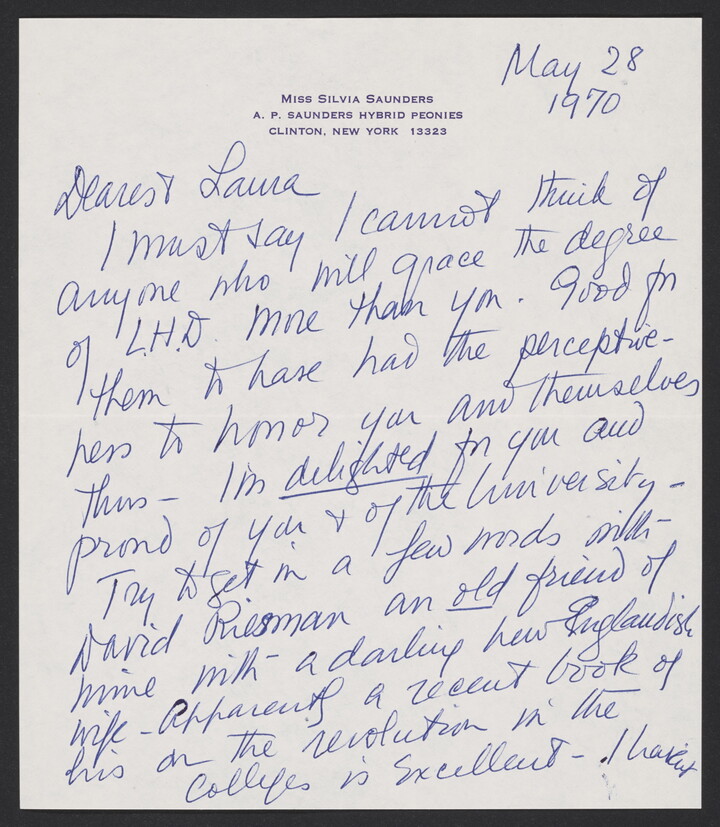 May 28
1970
MISS SILVIA SAUNDERS
A. P. SAUNDERS HYBRID PEONIES
CLINTON, NEW YORK 13323
Dearest Laura
I must say I cannot think of
anyone who will grace the degree
of L.H.D. more than you. Good for
them to have had the perceptive-
ness to honor you and themselves
thus - I'm delighted for you and
proud of you & of the University -
Try to get in a few words with
David Riesman an old friend of
mine with a darling New Englandish
wife - Apparently a recent book of
his on the revolution in the
Colleges is excellent - I haven't